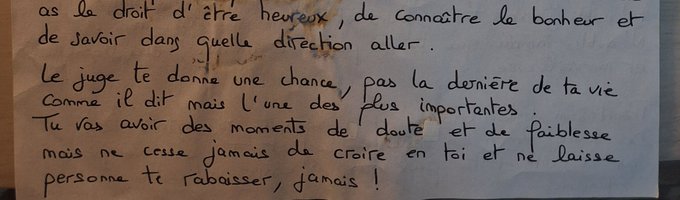 as le droit d'être heureux, de connaître le bonheur et
de savoir dans quelle direction aller.
Le juge te donne une chance, pas la dernière de ta vie
comme il dit mais l'une des plus importantes.
Tu vas avoir des moments de doute et de faiblesse
mais ne cesse jamais de croire en toi et ne laisse
personne te rabaisser, jamais !